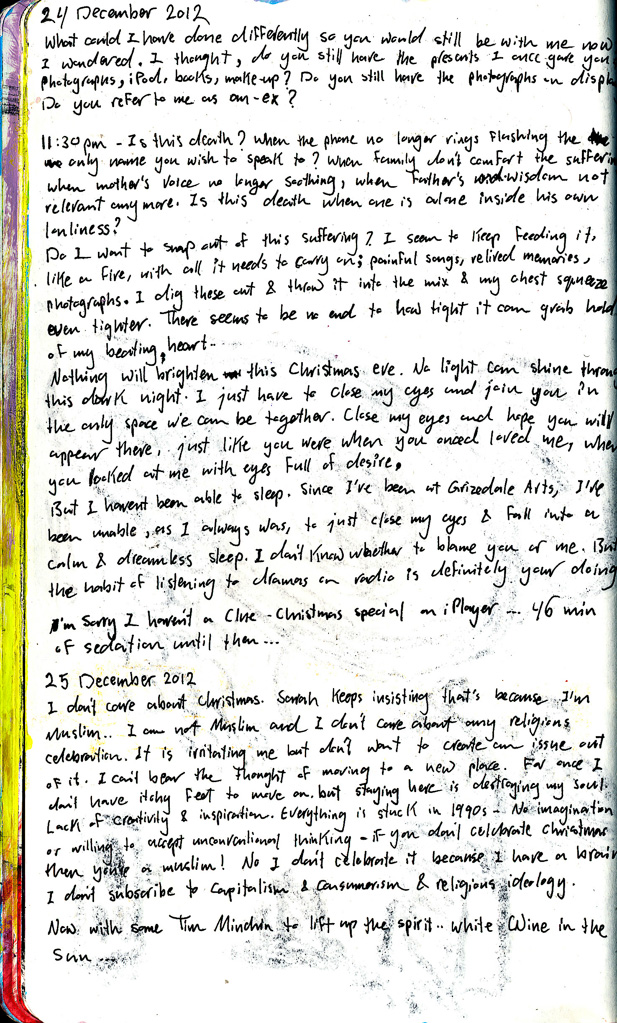 24 December 2012
What could I have done differently so you would still be with me now
I wondered. I thought, do you still have the presents I once gave you
photographs, iPod, books, make-up? Do you still have the photographs on displa
Do you refer to me as an-ex?
11:30pm - Is this death? When the phone no longer rings flashing the
only name you wish to speak to? When family don't comfort the sufferin
when mother's voice no longer soothing, when father's wisdom not
relevant any more. Is this death when one is alone inside his own
lonliness?
Do I want to snap out of this suffering? I seem to keep feeding it,
like a fire, with all it needs to carry on; painful songs, relived memories,
photographs. I dig these out & throw it into the mix & my chest squeeze
even tighter. There seems to be no end to how tight it can grab hold
of my beating, heart..
Nothing will brighten this Christmas eve. No light can shine throu
this dark night. I just have to close my eyes and join you in
the only space we can be together. Close my eyes and hope you will
appear there, just like you were when you onced loved me, when
you looked at me with eyes full of desire.
But I havent been able to sleep. Since I've been at Grizedale Arts, I've
been unable, as I always was, to just close my eyes & fall into a
calm & dreamless sleep. I don't know whether to blame you or me. But
the habit of listening to dramas on radio is definitely your doing
I'm Sorry I haven't a Clue - Christmas special on iPlayer ... 46 min
of sedation until then...
25 December 2012
I don't care about Christmas. Sarah keeps insisting that's because I'm
Muslim.. I am not Muslim and I don't care about any religions
celebration. It is irritating me but don't want to create an issue out
of it. I can't bear the thought of moving to a new place. For once I
don't have itchy feet to move on. but staying here is destroying my soul.
Lack of creativity & inspiration. Everything is stuck in 1990s - No imagination
or willing to accept unconventional thinking - if you don't celebrate Christmas
then you're a muslim! No I don't celebrate it because I have a brain
I don't subscribe to capitalism & consumerism & religious ideology.
Now with some Tim Minchin to lift up the spirit.. White Wine in the
Sun ...